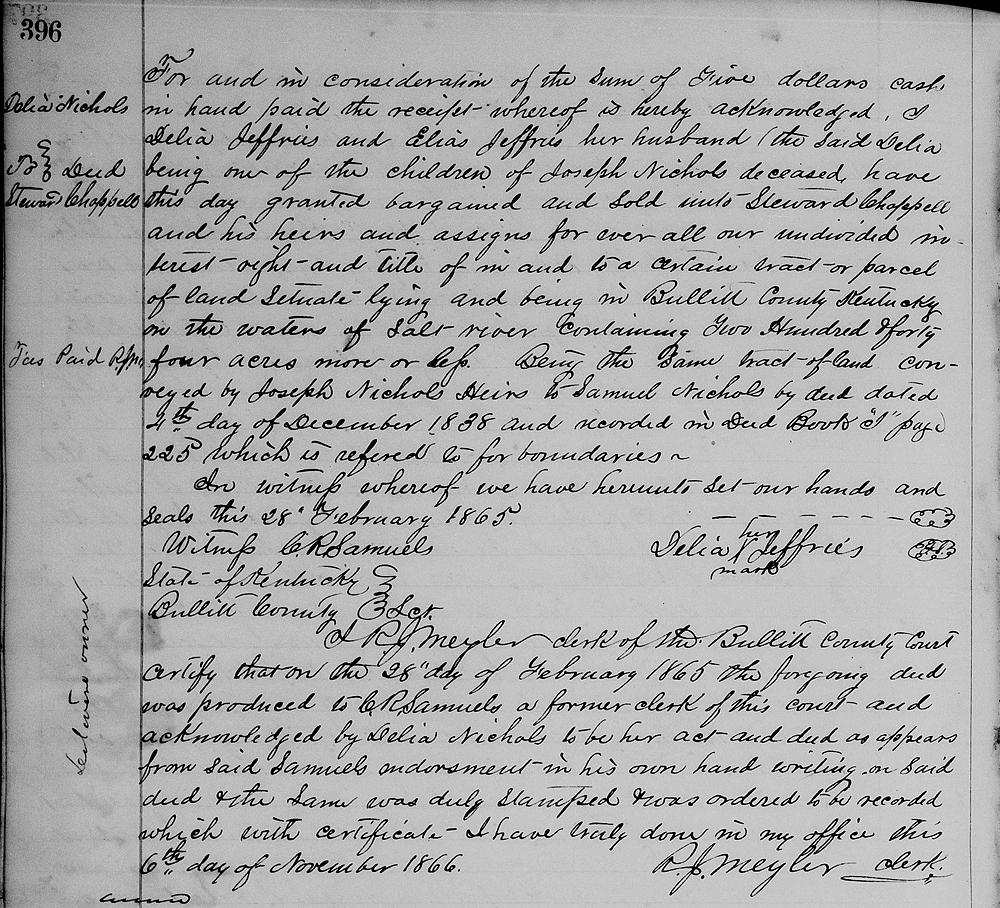 396
Delia Nichols
To } Deed
Steward Chappell
Tax Paid RJM
For and in consideration of the Sum of Five dollars cash
in hand paid the receipt whereof is hereby acknowledged, I
Delia Jeffries and Elias Jeffries her husband (the said Delia
being one of the children of Joseph Nichols deceased, have
this day granted bargained and sold unto Steward Chappell
and his heirs and assigns for ever all our undivided in-
terest right and title of in and to a certain tract or parcel
of land Situate lying and being in Bullitt County Kentucky
on the waters of Salt river Containing Two Hundred & forty
four acres more or less. Being the Same tract of land con-
veyed by Joseph Nichols Heirs to Samuel Nichols by deed dated
4th day of December 1838 and recorded in Deed Book "I" page
225 which is refered to for boundaries ~
In witness whereof we have hereunto set our hands and
Seals this 28" February 1865.
Witness C.R. Samuels
her
Delia X Jeffries
mark
State of Kentucky }
Bullitt County } Sct.
I R.J. Meyler clerk of the Bullitt County Court
certify that on the 28" day of February 1865 the foregoing deed
was produced to C.R. Samuels a former clerk of this court and
acknowledged by Delia Nichols to be her act and deed as appears
from said Samuels endorsment in his own hand writing on said
deed & the same was duly Stamped & was ordered to be recorded
which with certificate I have truly done in my office this
6th day of November 1866.
R.J. Meyler clerk.